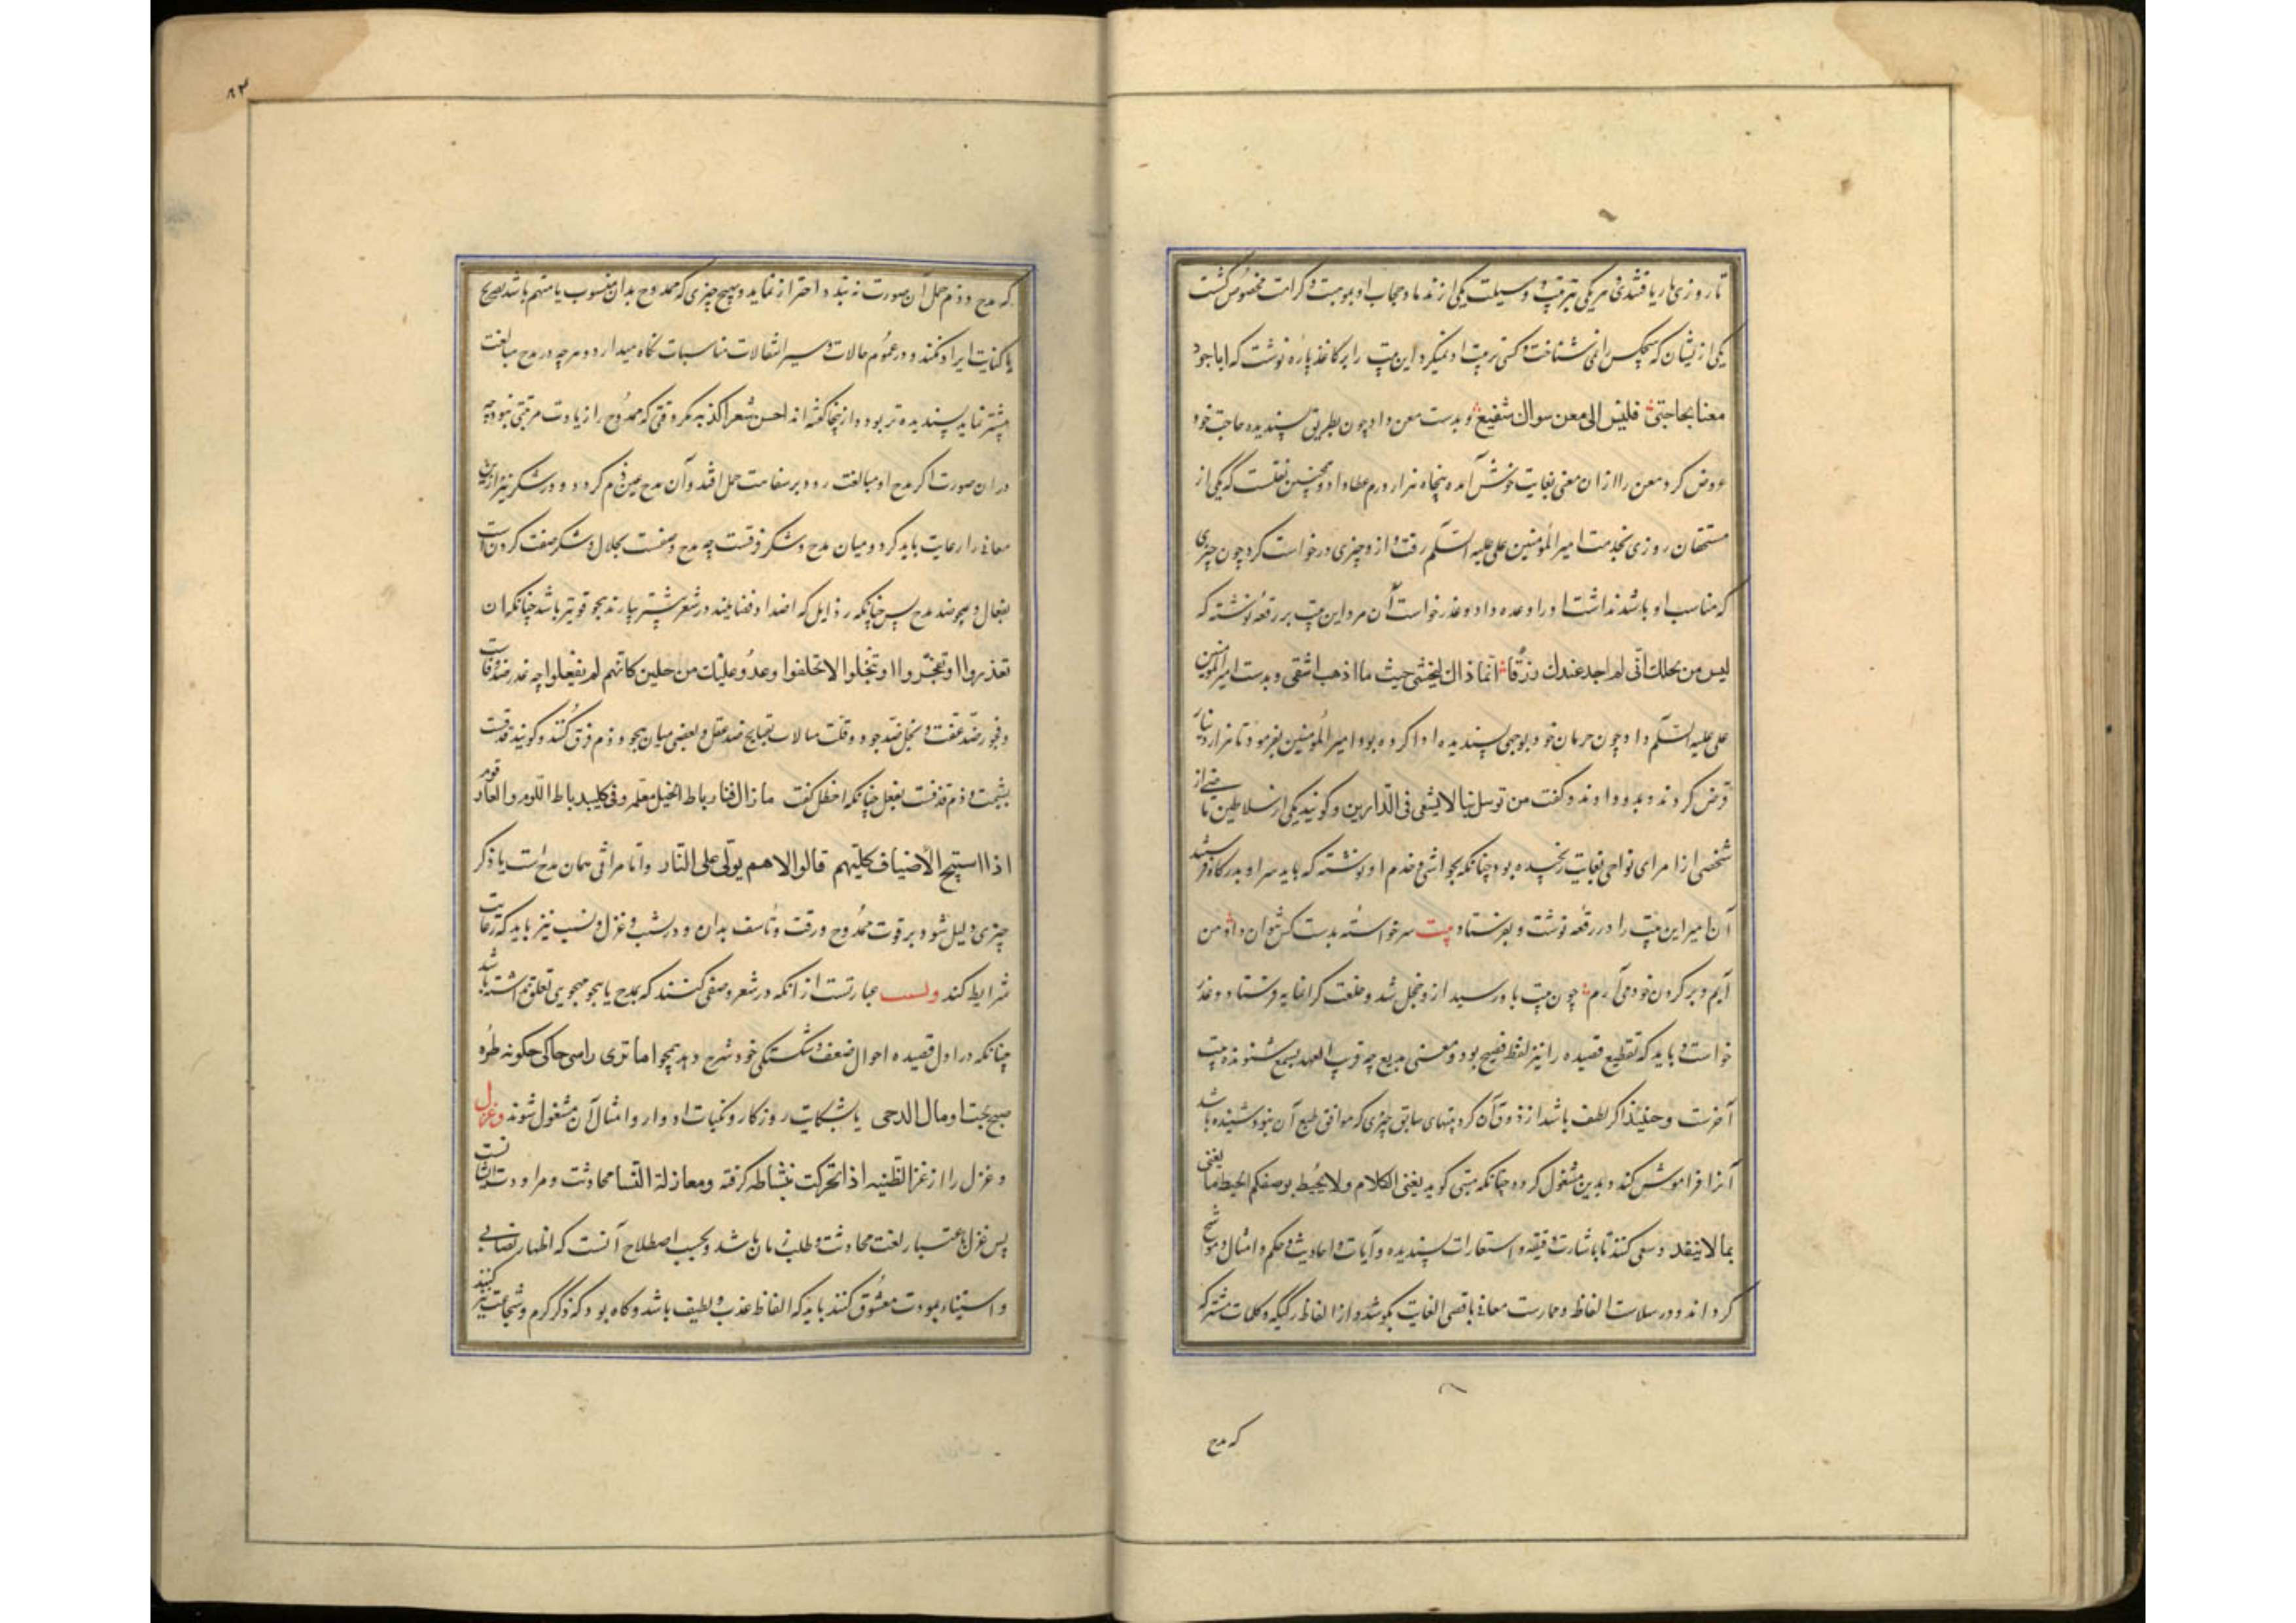 تا روزی بار یافتند هر یکی بتربیت و وسیلت یکی از ندما و حجاب او بموهبت و کرامت مخصوص گشت
یکی از ایشان که هیچکس را نمی شناخت و کسی تربیت او نمیکرد این بیت را بر کاغذ پاره نوشت که ایا جود
معنا بحاجتی فلیس الی معن سواک شفیع و بدست معن داد چون بطریق پسندیده حاجت خود
عرض کرد معن را از ان معنی بغایت خوش آمد پنجاه هزار درم عطا داد و همچنین نقلست که یکی از
مستحقان روزی بخدمت امیر المؤمنین علی علیه السلم رفت و از و چیزی درخواست کرد چون چیزی
که مناسب او باشد نداشت او را وعده داد و عذر خواست آن مرد این بیت بر رقعه نوشته که
لیس من بخلک انی لم اجد عندک رزقا انما ذاک لبختی حیث ما اذهب اشقی و بدست امیر المؤمنین
علی علیه السلم داد چون حرمان خود بوجهی پسندیده ادا کرده بود امیر المؤمنین بفرمود تا هزار دینار
قرض کردند و بدو دادند و گفت من توسل بنا لا یشقی فی الدارین و گویند یکی از سلاطین ماضی از
شخصی از امرای نواحی بغایت رنجیده بود چنانکه بحواشی و خدم او نوشته که باید سر او بدرگاه فرستید
آن امیر این بیت را در رقعه نوشت و بفرستاد بیت سر خواسته بدست کس نتوان داد من
آیم و بر گردن خود می آرم چون بیت باو رسید ازو خجل شد و خلعت گرانمایه فرستاد و عذر
خواست و باید که تقطیع قصیده را نیز لفظ فصیح بود و معنی بدیع چه قریب العهد بسمع شنونده بیت
آخرست و حینئذ اگر لطف باشد از ذوق آن گر بیتهای سابق چیزی که موافق طبع آن نبود شنیده باشد
آنرا فراموش کند و بدین مشغول گردد چنانکه متنبی گوید یفنی الکلام و لا یحیط بوصفکم ایحیط ما یفنی
بما لا ینفد و سعی کنند تا باشارت دقیقه و استعارات پسندیده و آیات و احادیث و حکم و امثال موشح
گرداند و در سلاست الفاظ و ممارست معانی باقصی الغایت بکوشد و از الفاظ رکیکه و کلمات مشترکه
که مدح
۸۳
که مدح و ذم حمل آن صورت نه بندد احتراز نماید و هیچ چیزی که ممدوح بدان منسوب یا متهم باشد بصریح
یا کنایت ایراد نکند و در عموم حالات و سیر انتقالات مناسبات نگاه میدارد و هر چه در مدح مبالغت
بیشتر نماید پسندیده تر بود و از ینجا گفته اند احسن شعر اکذبه مگر وقتی که ممدوح را زیادت مرتبتی نبود چه
در ان صورت اگر مدح او مبالغت رود بر سفاهت حمل افتد و آن مدح عین ذم گردد و در شکر نیز این
معانی را رعایت باید کرد و میان مدح و شکر فرقست چه مدح وصفست بجلال و شکر صفت کردن است
بفعال و هجو ضد مدح پس چنانکه رذایل که اضداد فضایلند در شعر بیشتر بیارند هجو قویتر باشد چنانکه ان
تغدروا او تفجروا او تبخلوا لا تحلفوا وعدو علیک من جلین کانهم لم یفعلوا چه غدر ضد وفاست
و فجور ضد عفت و بخل ضد جود و قلت مبالات بقبایح ضد عقل و بعضی میان هجو و ذم فرق کنند و گویند قدحست
بشیمت و ذم قدحست بفعل چنانکه اخطل گفت ما زال فینا رباط الخیل معلمة و فی کلیب رباط اللوم و العار قوم
اذا استنبح الاضیاف کلبهم قالوا لامهم بولی علی النار و اما مراثی همان مدح است یا ذکر
چیزی دلیل شود بر فوت ممدوح و رقت و تاسف بدان و در نسیب و غزل و تشبیب نیز باید که رعایت
شرایط کند و نسیب عبارتست از انکه در شعر وصفی کنند که بمدح یا هجو مهجوی تعلق نداشته باشد
چنانکه در اول قصیده احوال ضعف و شکستگی خود شرح دهد همچو اما تری راسی حاکی چگونه طره
صبح تحت اومال الدجی یا بشکایت روزگار و نکبات ادوار و امثال آن مشغول شوند و غزل
و غزل را از غزا لظبیه اذا تحرکت بنشاطه گرفته و مغازلة النسا محادثت و مراودت ایشانست
پس غزل باعتبار لغت محادثت و طلب زمان باشد و بحسب اصطلاح آنست که اظهار تصابی
و استیناء بمودت معشوق کنند باید که الفاظ عذب و لطیف باشد و گاه بود که ذکر کرم و شجاعت نیز کنند